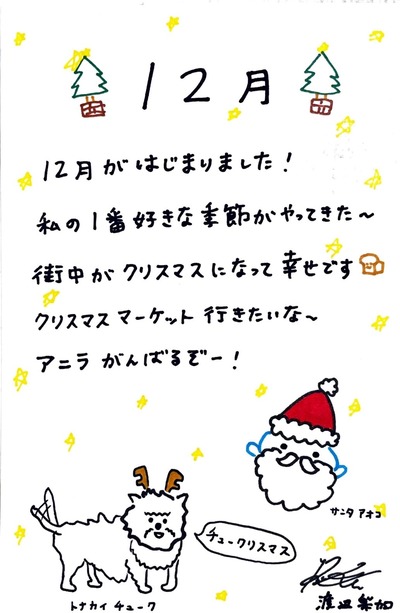 12月
12月がはじまりました!
私の1番好きな季節がやってきた〜
街中がクリスマスになって幸せです
クリスマスマーケット行きたいな〜
アニラがんばるぞー!
サンタアオコ
チュークリスマス
トナカイチューク
渡辺梨加